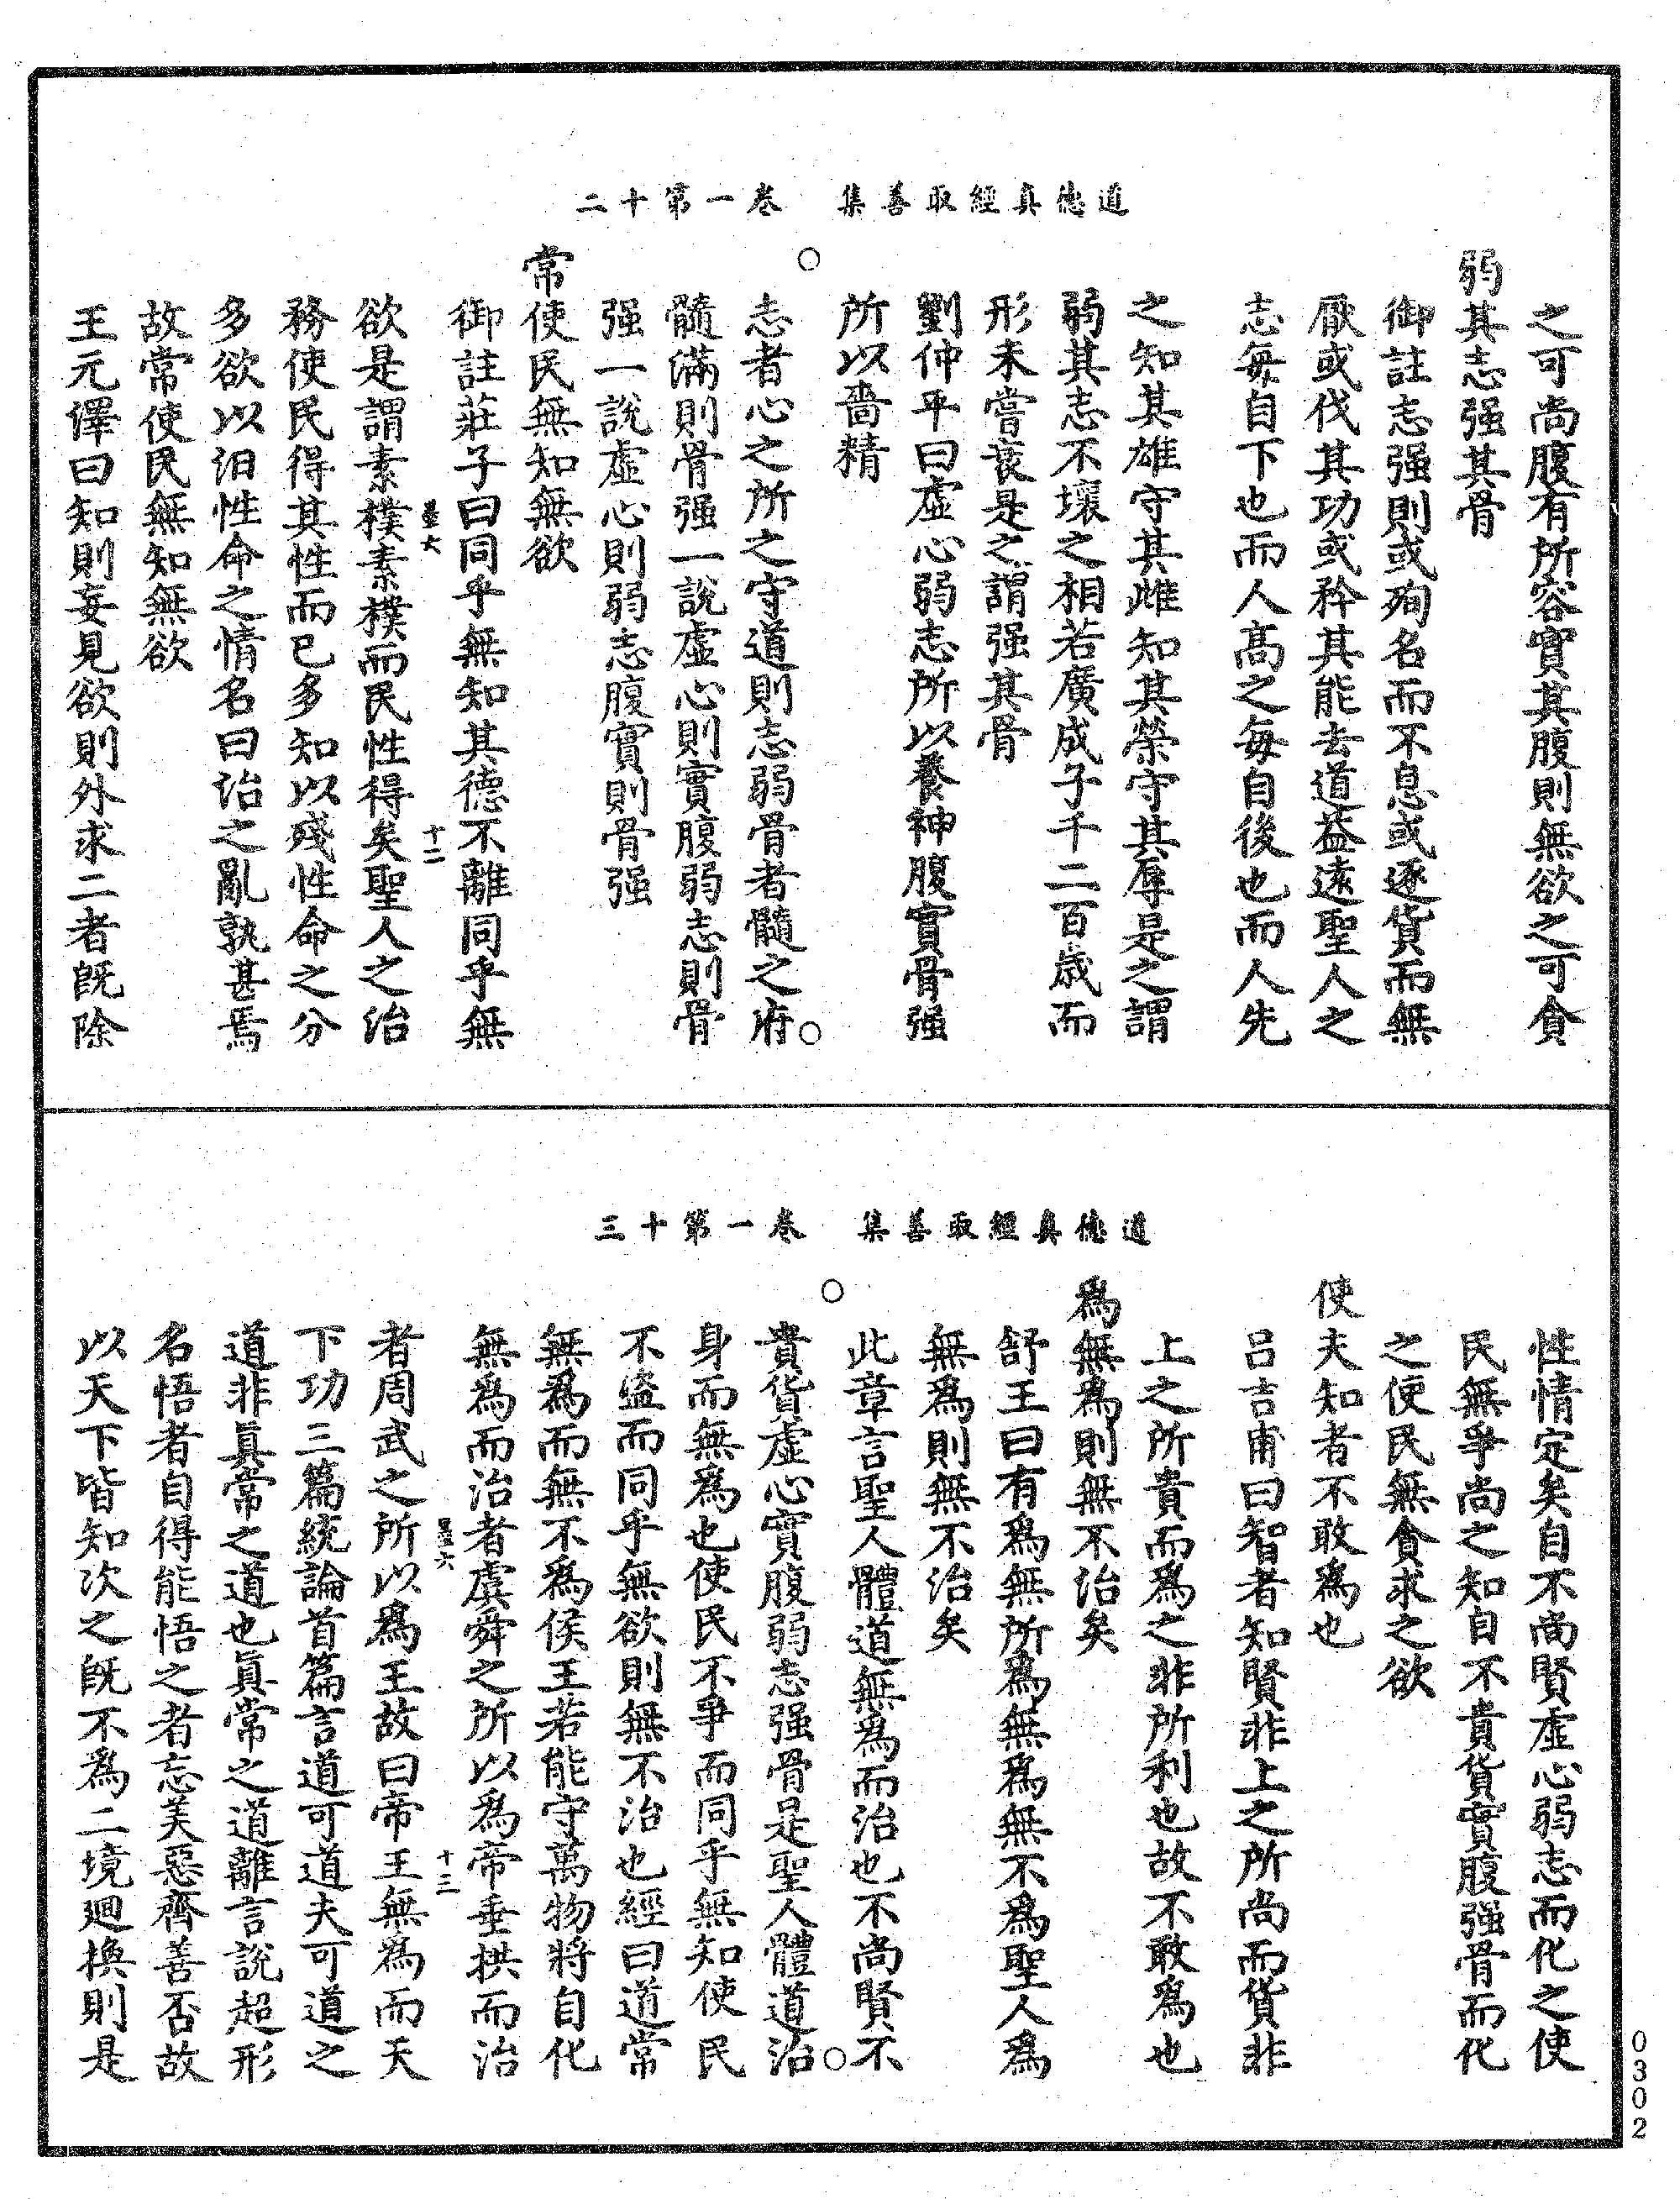 道德真經取善集　卷一第十二
之可尚腹有所容實其腹則無欲之可貪
弱其志强其骨
御註志强則或殉名而不息或逐貨而無
厭或伐其功或矜其能去道益遠聖人之
志每自下也而人高之每自後也而人先
之知其雄守其雌知其榮守其辱是之謂
弱其志不壞之相若廣成子千二百歲而
形未嘗衰是之謂强其骨
劉仲平曰虛心弱志所以養神腹實骨强
所以嗇精
志者心之所之守道則志弱骨者髓之府
髓滿則骨强一說虛心則實腹弱志則骨
强一說虛心則弱志腹實則骨强
常使民無知無欲
御註莊子曰同乎無知其德不離同乎無
十二
欲是謂素樸素樸而民性得矣聖人之治
務使民得其性而已多知以殘性命之分
多欲以汩性命之情名曰治之亂孰甚焉
故常使民無知無欲
王元澤曰知則妄見欲則外求二者既除
道德真經取善集　卷一第十三
性情定矣自不尚賢虛心弱志而化之使
民無爭尚之知自不貴貨實腹强骨而化
之使民無貪求之欲
使夫知者不敢爲也
呂吉甫曰智者知賢非上之所尚而貨非
上之所貴而爲之非所利也故不敢爲也
爲無爲則無不治矣
舒王曰有爲無所爲無爲無不爲聖人爲
無爲則無不治矣
此章言聖人體道無爲而治也不尚賢不
貴貨虛心實腹弱志强骨是聖人體道治
身而無爲也使民不爭而同乎無知使民
不盜而同乎無欲則無不治也經曰道常
無爲而無不爲侯王若能守萬物將自化
無爲而治者虞舜之所以爲帝垂拱而治
十三
者周武之所以爲王故曰帝王無爲而天
下功三篇統論首篇言道可道夫可道之
道非眞常之道也眞常之道離言說超形
名悟者自得能悟之者忘美惡齊善否故
以天下皆知次之既不爲二境迴換則是
0302